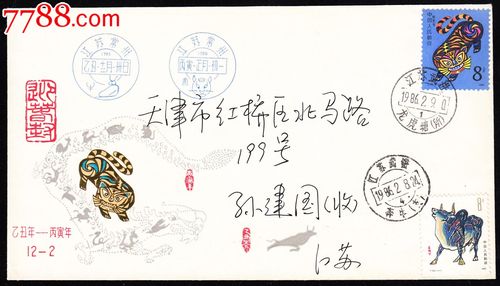 7788.com
江苏常州
乙丑·十二月·卅日
江苏常州
丙寅·正月·初一
中国人民邮政
8分
江苏常州
1986.2.9.0
1
天津市红桥区水马路
199号
孙建国(收)
江苏
江苏常州
1986.2.8.24
4
8分
中国人民邮政
乙丑年——丙寅年
12-2